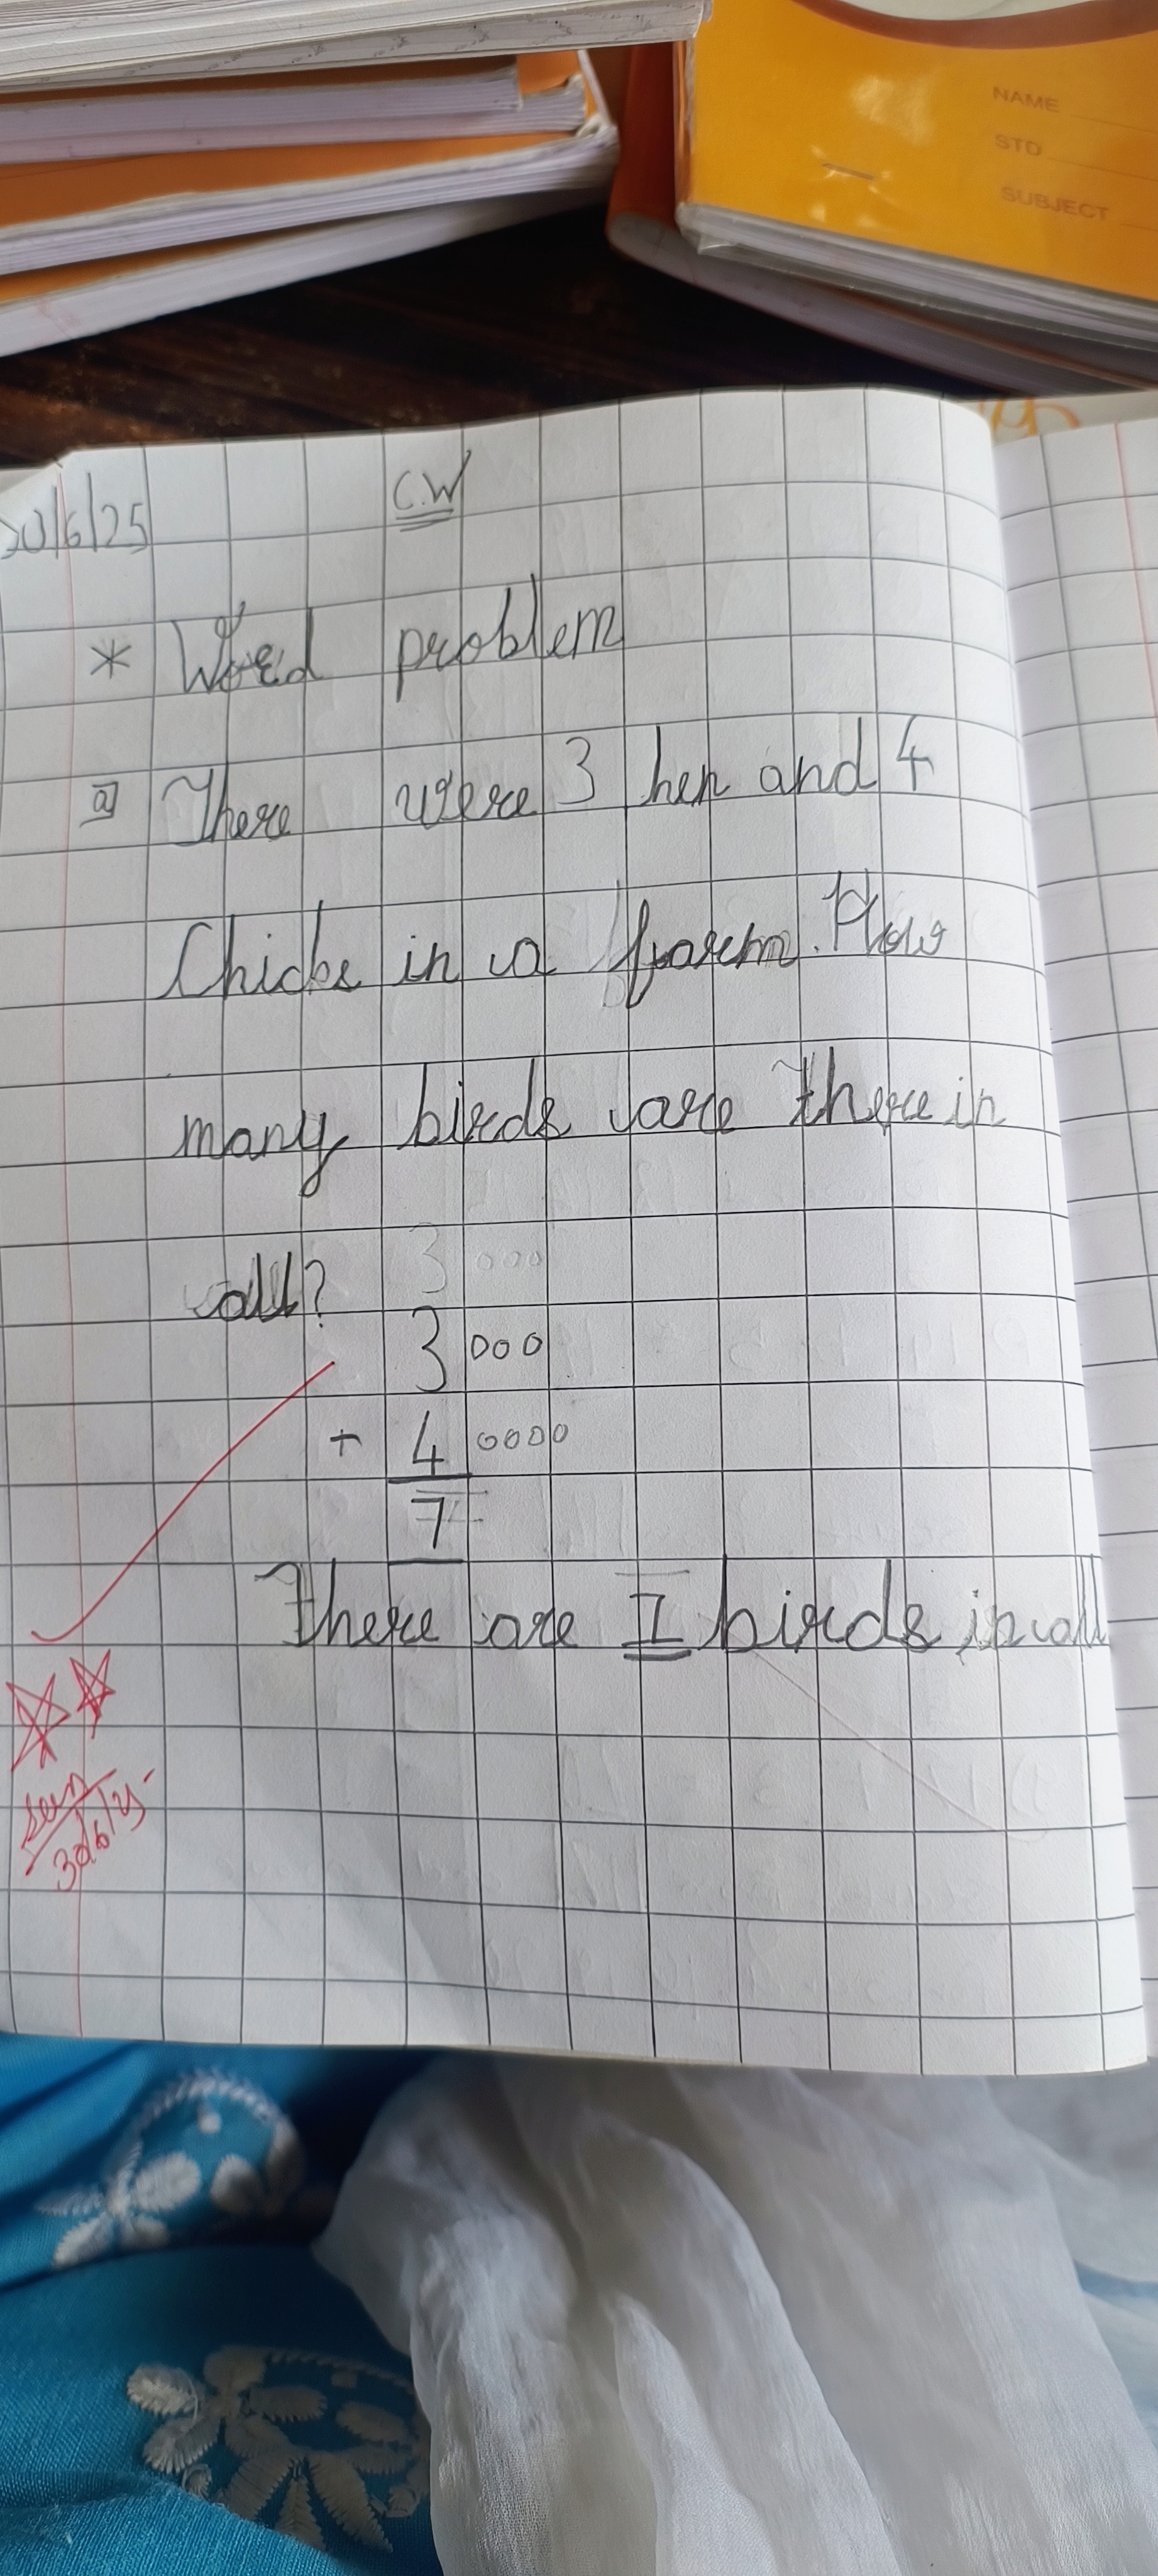 NAME
STD
SUBJECT
C.W
* Word problem
a] There were 3 hen and 4
Chicks in a farm. How
many birds are there in
all?
3 000
3 000
+ 4 0000
7
There are 7 birds in all